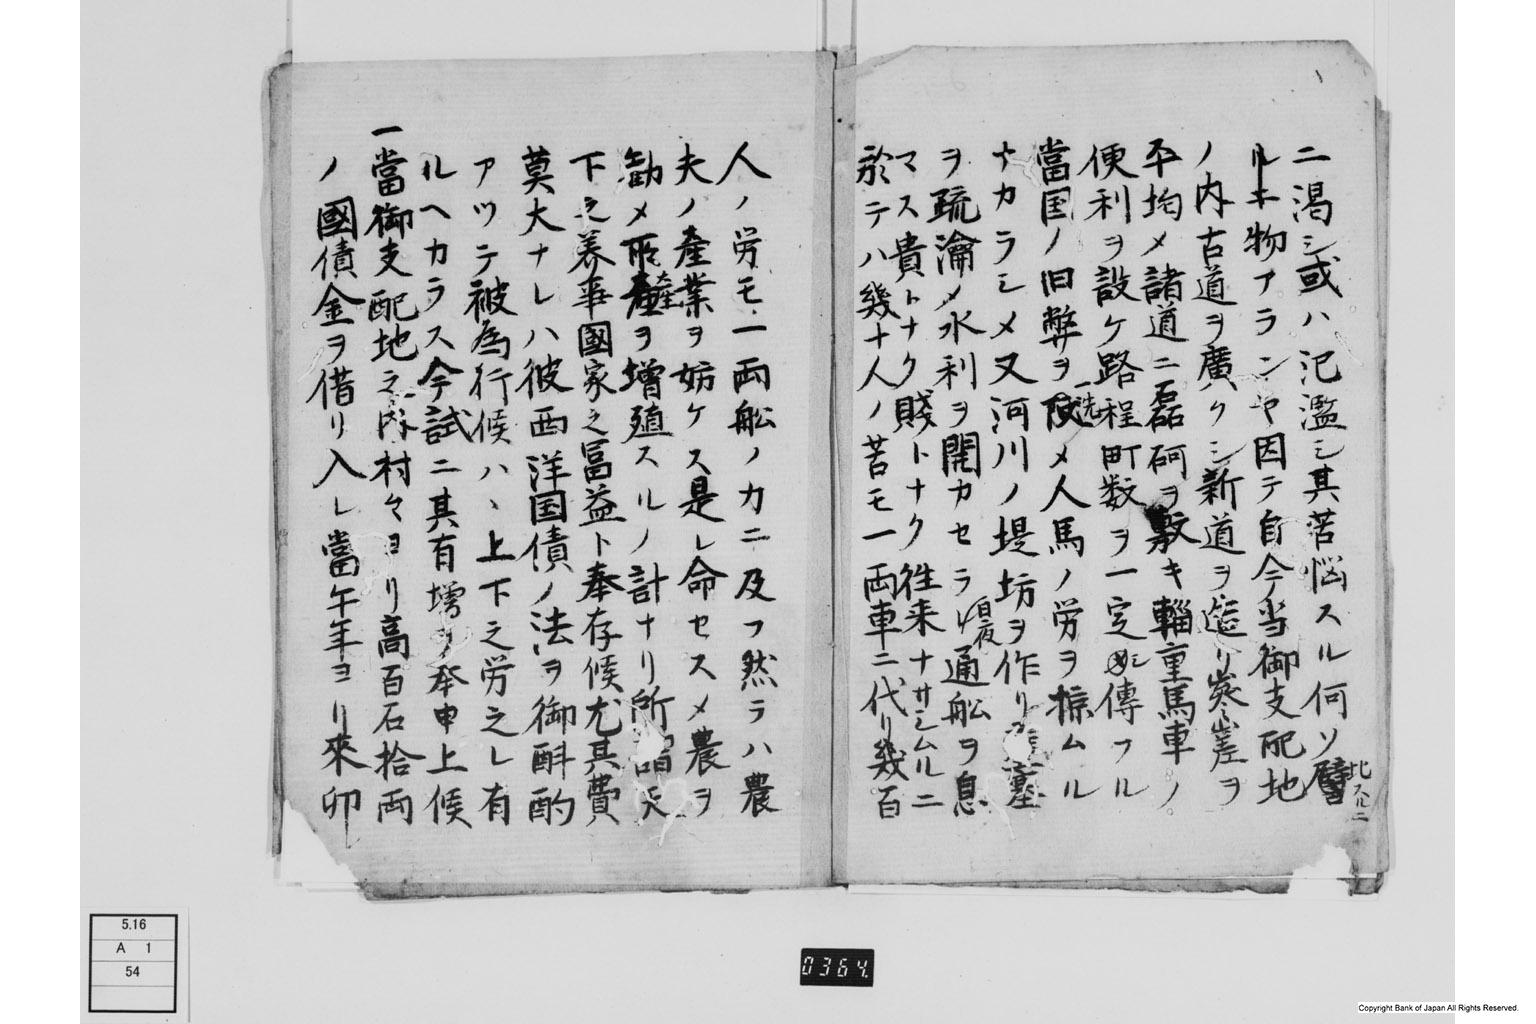 ニ渇シ或ハ氾濫シ其苦悩スル何ソ譬
比スルニ
ルニ物アランヤ因テ自今当御支配地
ノ内古道ヲ廣クシ新道ヲ造リ嵳ヲ
平均メ諸道ニ磊砢ヲ敷キ輜重馬車ノ
便利ヲ設ケ路程町数ヲ一定シ傳フル
當国ノ旧弊ヲ一洗メ人馬ノ労ヲ掠ムル
ナカラシメ又河川ノ堤坊ヲ作リ壅塞
ヲ疏瀹メ水利ヲ開カセラレ日夜通船ヲ息
マス貴トナク賤トナク徃来ナサシムルニ
於テハ幾十人ノ苦モ一両車ニ代リ幾百
人ノ労モ一両舩ノカニ及フ然ラハ農
夫ノ産業ヲ妨ケス是レ命セスメ農ヲ
勧メ所産ヲ増殖スルノ計ナリ所謂天
下之養事國家之冨益ト奉存候尤其費
莫大ナレハ彼西洋国債ノ法ヲ御斟酌
アツテ被為行候ハヽ上下之労之レ有
ルヘカラス今試ニ其有増ヲ奉申上候
一當御支配地之内村々ヨリ高百石拾両
ノ國債金ヲ借リ入レ當午年ヨリ來卯
5.16
A 1
54
0364
Copyright Bank of Japan All Rights Reserved.